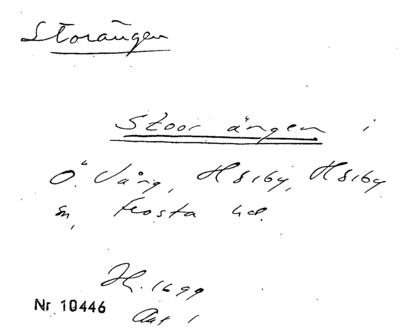 Storängen
Stoor ängen i
Ö. Vång, Hsiby, Hsiby
sn, Frosta hd.
H. 1699
Nr 10446
Akt 1